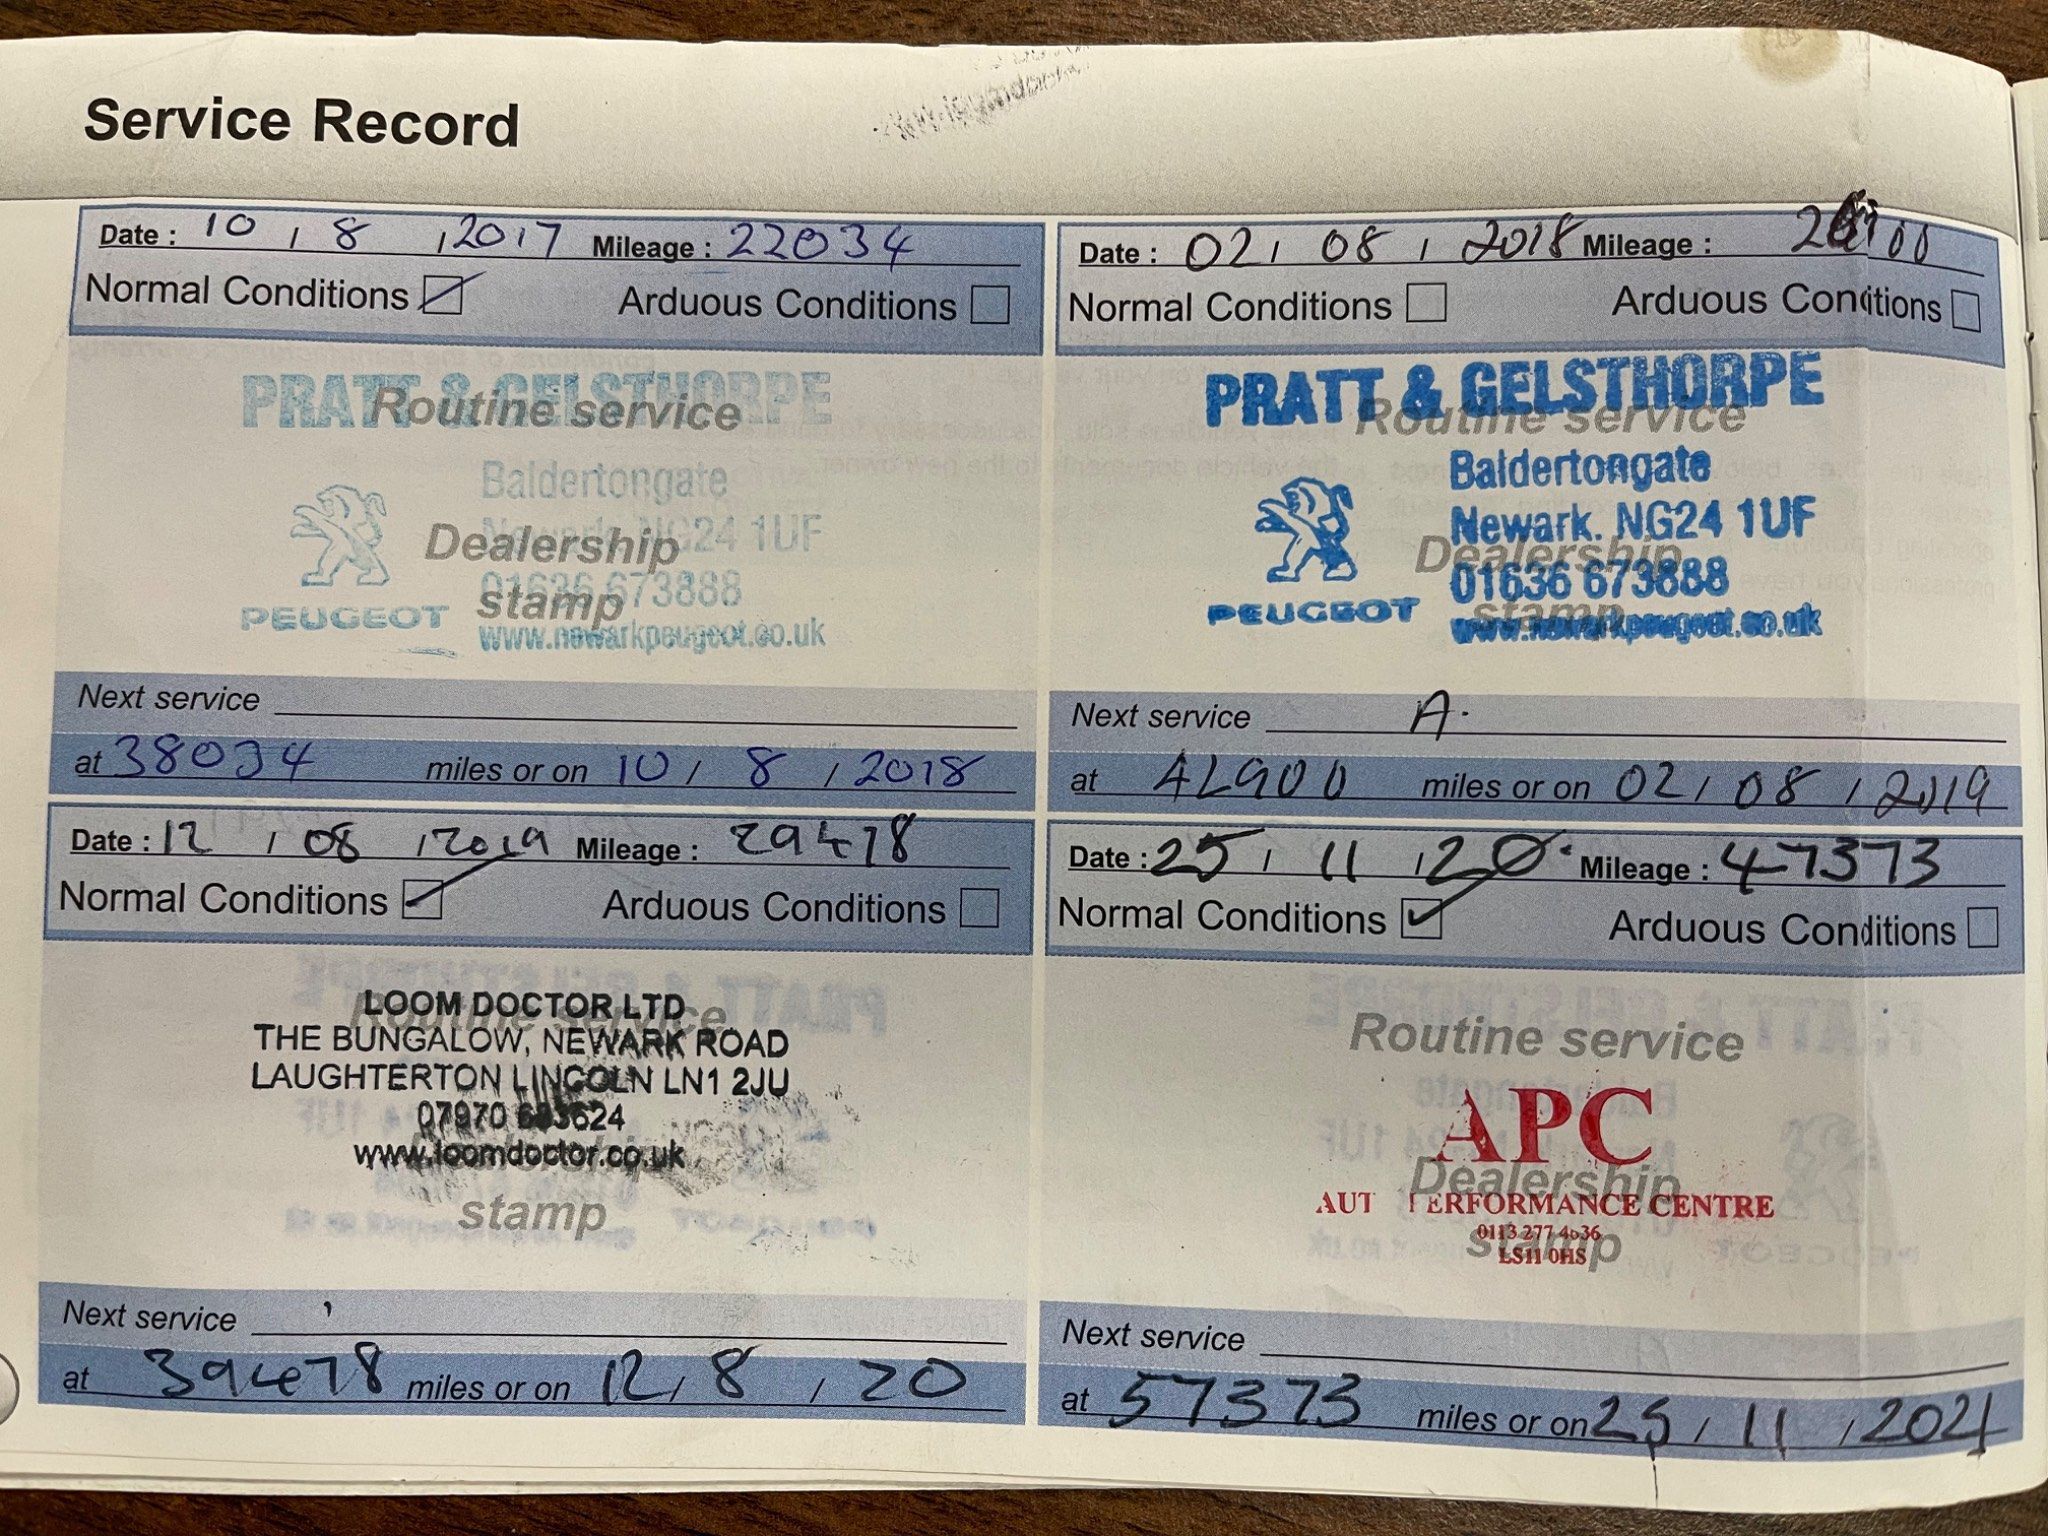 Service Record
Date : 10 / 8 / 2017 Mileage : 22034
Normal Conditions Arduous Conditions
PRATT & GELSTHORPE
Routine service
Baldertongate
Newark. NG24 1UF
Dealership
01636 673888
stamp
PEUGEOT
www.newarkpeugeot.co.uk
Next service
at 38034 miles or on 10 / 8 / 2018
Date : 02 / 08 / 2018 Mileage :
Normal Conditions Arduous Conditions
PRATT & GELSTHORPE
Routine service
Baldertongate
Newark. NG24 1UF
Dealership
01636 673888
stamp
PEUGEOT
www.newarkpeugeot.co.uk
Next service A.
at 42900 miles or on 02 / 08 / 2019
Date : 12 / 08 / 2019 Mileage : 29478
Normal Conditions Arduous Conditions
LOOM DOCTOR LTD
Routine service
THE BUNGALOW, NEWARK ROAD
LAUGHTERTON LINCOLN LN1 2JU
07970 683624
Dealership
www.loomdoctor.co.uk
stamp
Next service
at 39478 miles or on 12 / 8 / 20
Date : 25 / 11 / 20 Mileage : 47373
Normal Conditions Arduous Conditions
Routine service
APC
Dealership
AUT PERFORMANCE CENTRE
0113 277 4636
stamp
LS11 0HS
Next service
at 57373 miles or on 25 / 11 / 2021